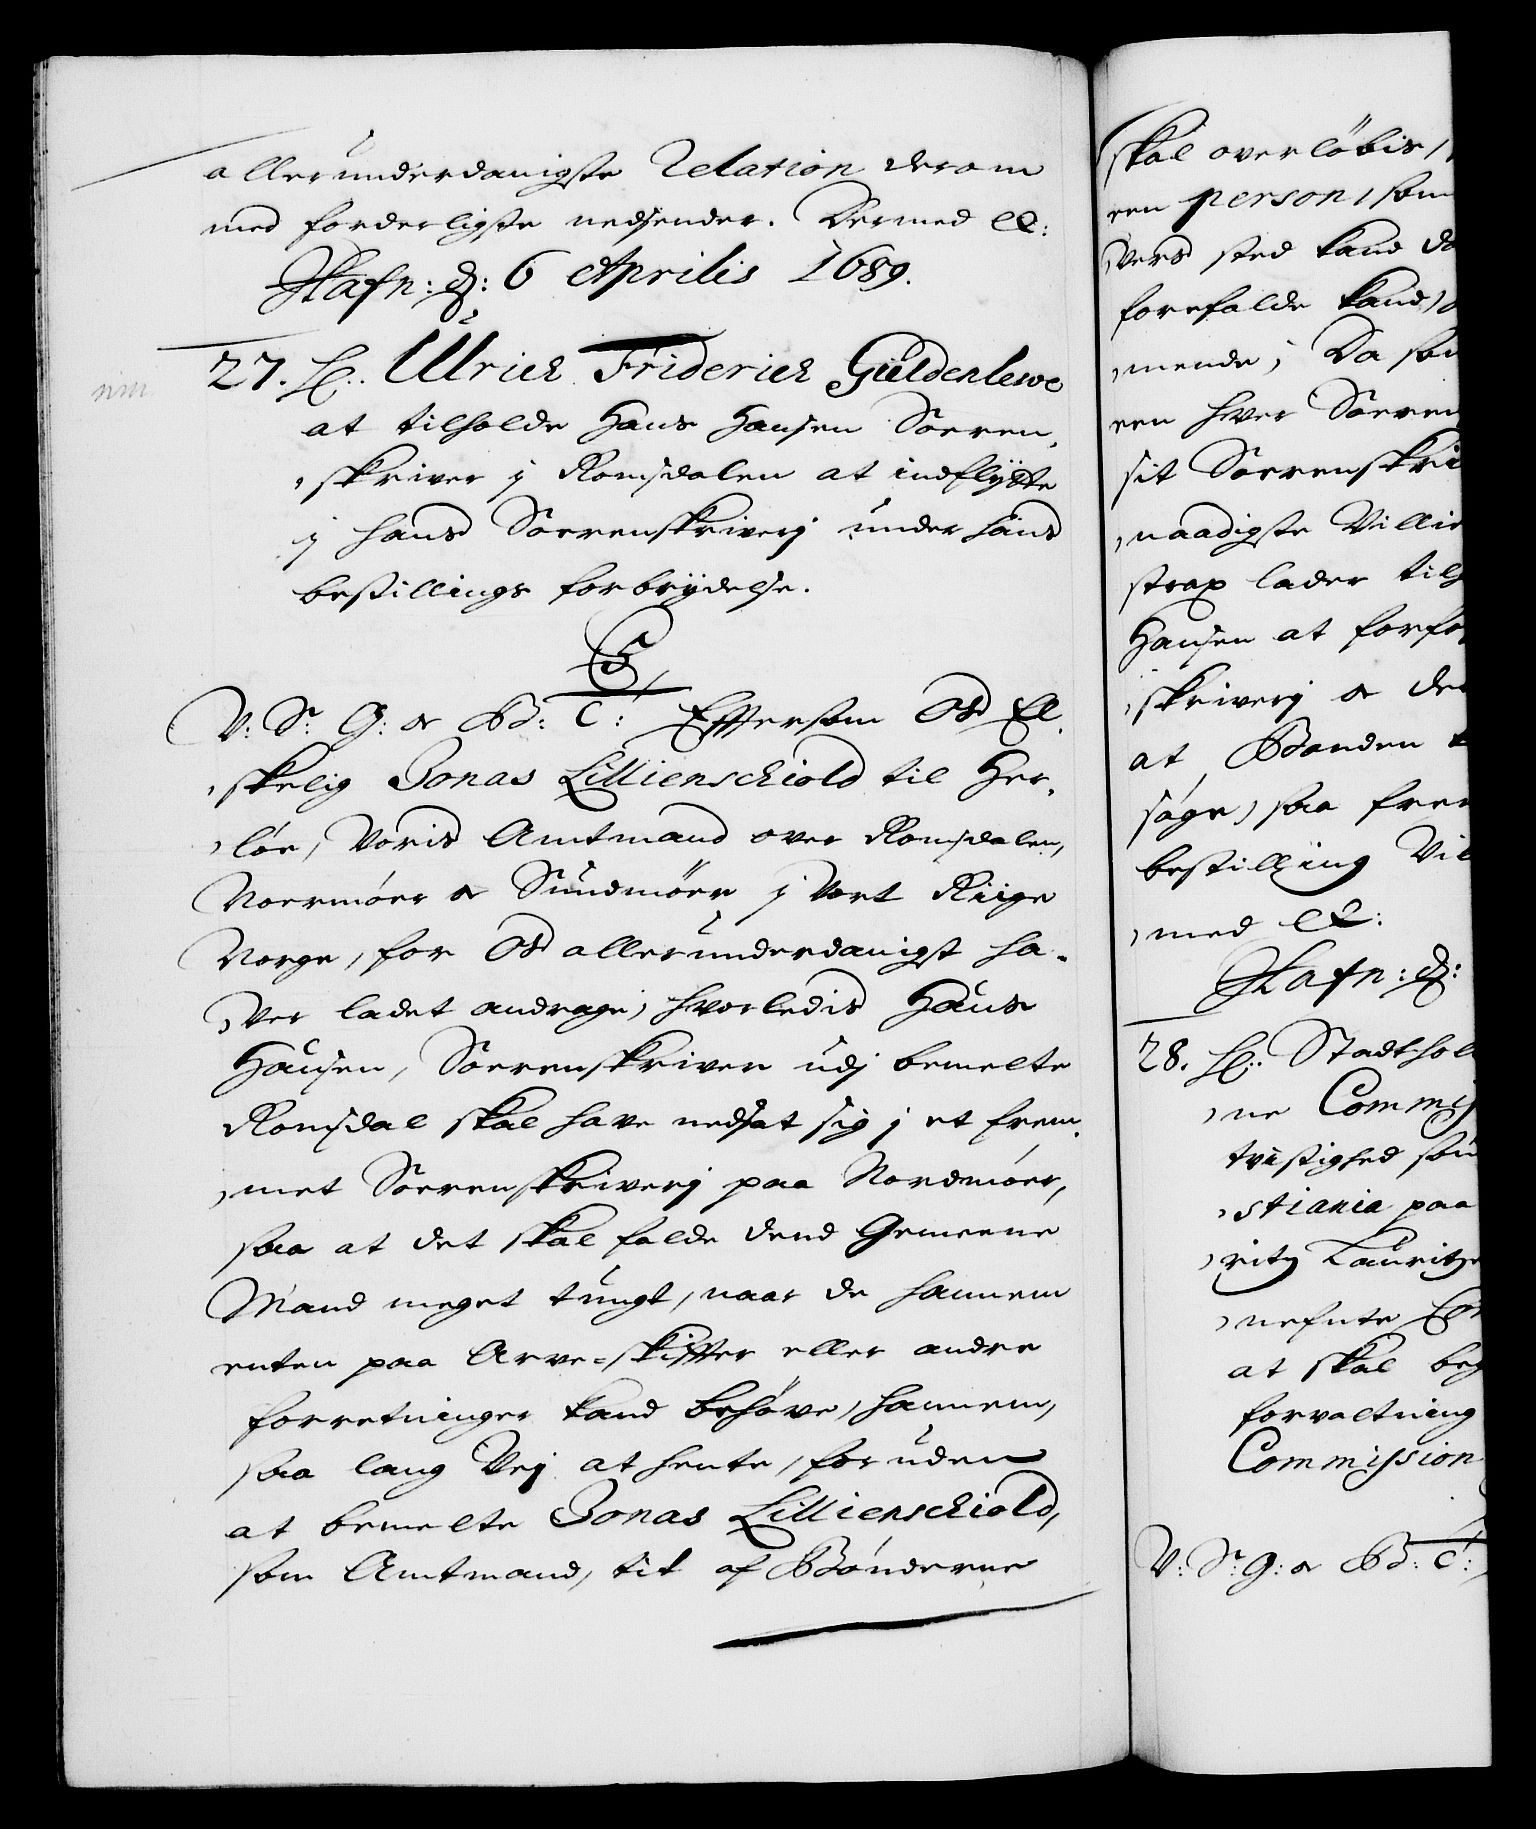 allerunderdanigste Relation derom
med forderligste nedsender. Dermed etc:
Hafn: d: 6 Aprilis 1689.
27. Ulrich Friderich Güldenlewe
at tilholde Hans Hansen Soeren-
skriver j Romsdalen at indflÿtte
j hans Soerenskriverj under hans
bestillings forbrÿdelse.
V: Sr. G: oc B: C: Effersom Os El-
skelig Jonas Lillienschiold til Her-
löe, Voris Amtmand over Romsdalen,
Noermöer oc Sundmöer j Vort Riige
Norge, for Os allerunderdanigst ha-
ver ladet andrage, hvorledis Hans
Hansen, Soerenskriver udj bemelte
Romsdal skal have nedsat sig j et frem-
met Soerenskriverj paa Nordmöer,
saa at det skal falde dend Gemeene
Mand meget tungt, naar de hannem
enten paa Arve-skiffter eller andre
forretninger kand behöve, hannem,
saa lang Vej at hente, foruden
at bemelte Jonas Lillienschiold,
som Amtmand, tit af Bönderne
skal overlöbis,
een person, som
vers sted kand
forefalde kand,
mende; Da
een hver Soeren
sit Soerenskri
naadigste Villie
strax lader til
Hansen at forfö
skriverj oc
at Bonden
söge, saa frem
bestilling Vil
med etc:
Hafn: d:
28. Stadthol
ne Commis
tvistighed
stiania paa
ritz Lauritze
nefnte
at skal beg
forvaltning
Commission
V: Sr. G: oc B: C: